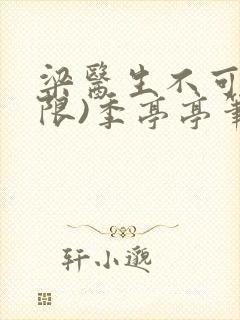 梁医生不可
限)季亭亭
轩小邈